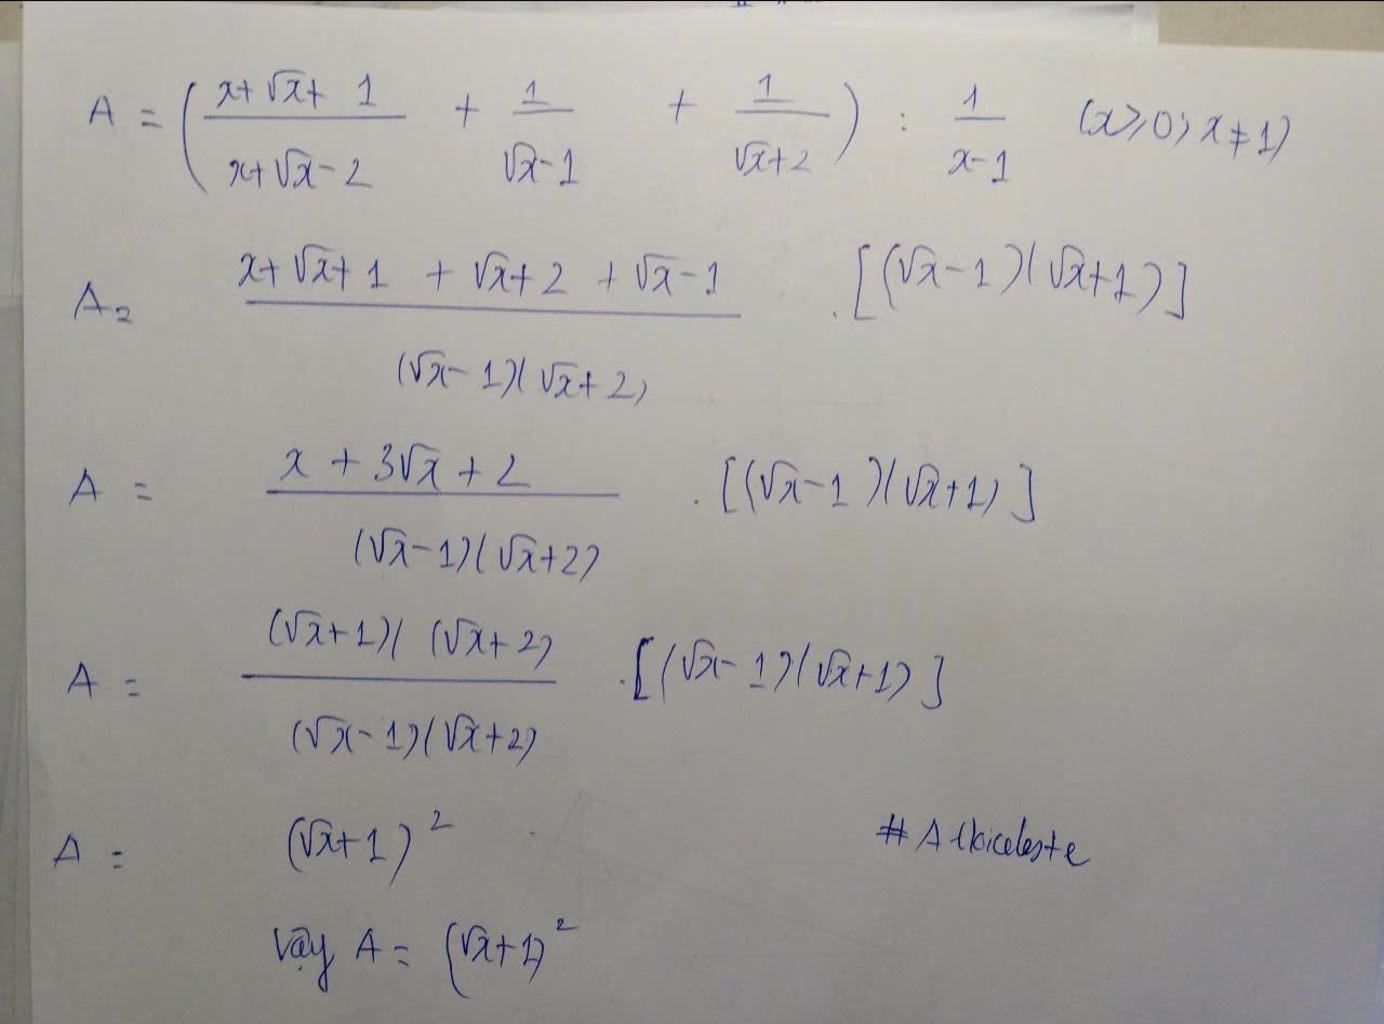 A = ( (x+√x+1)/(x+√x-2) + 1/(√x-1) + 1/(√x+2) ) : 1/(x-1) (x≥0; x≠1)
A = (x+√x+1 + √x+2 + √x-1)/((√x-1)(√x+2)) . [(√x-1)(√x+1)]
A = (x + 3√x + 2)/((√x-1)(√x+2)) . [(√x-1)(√x+1)]
A = ((√x+1)(√x+2))/((√x-1)(√x+2)) . [(√x-1)(√x+1)]
A = (√x+1)²
#Albiceleste
Vậy A = (√x+1)²